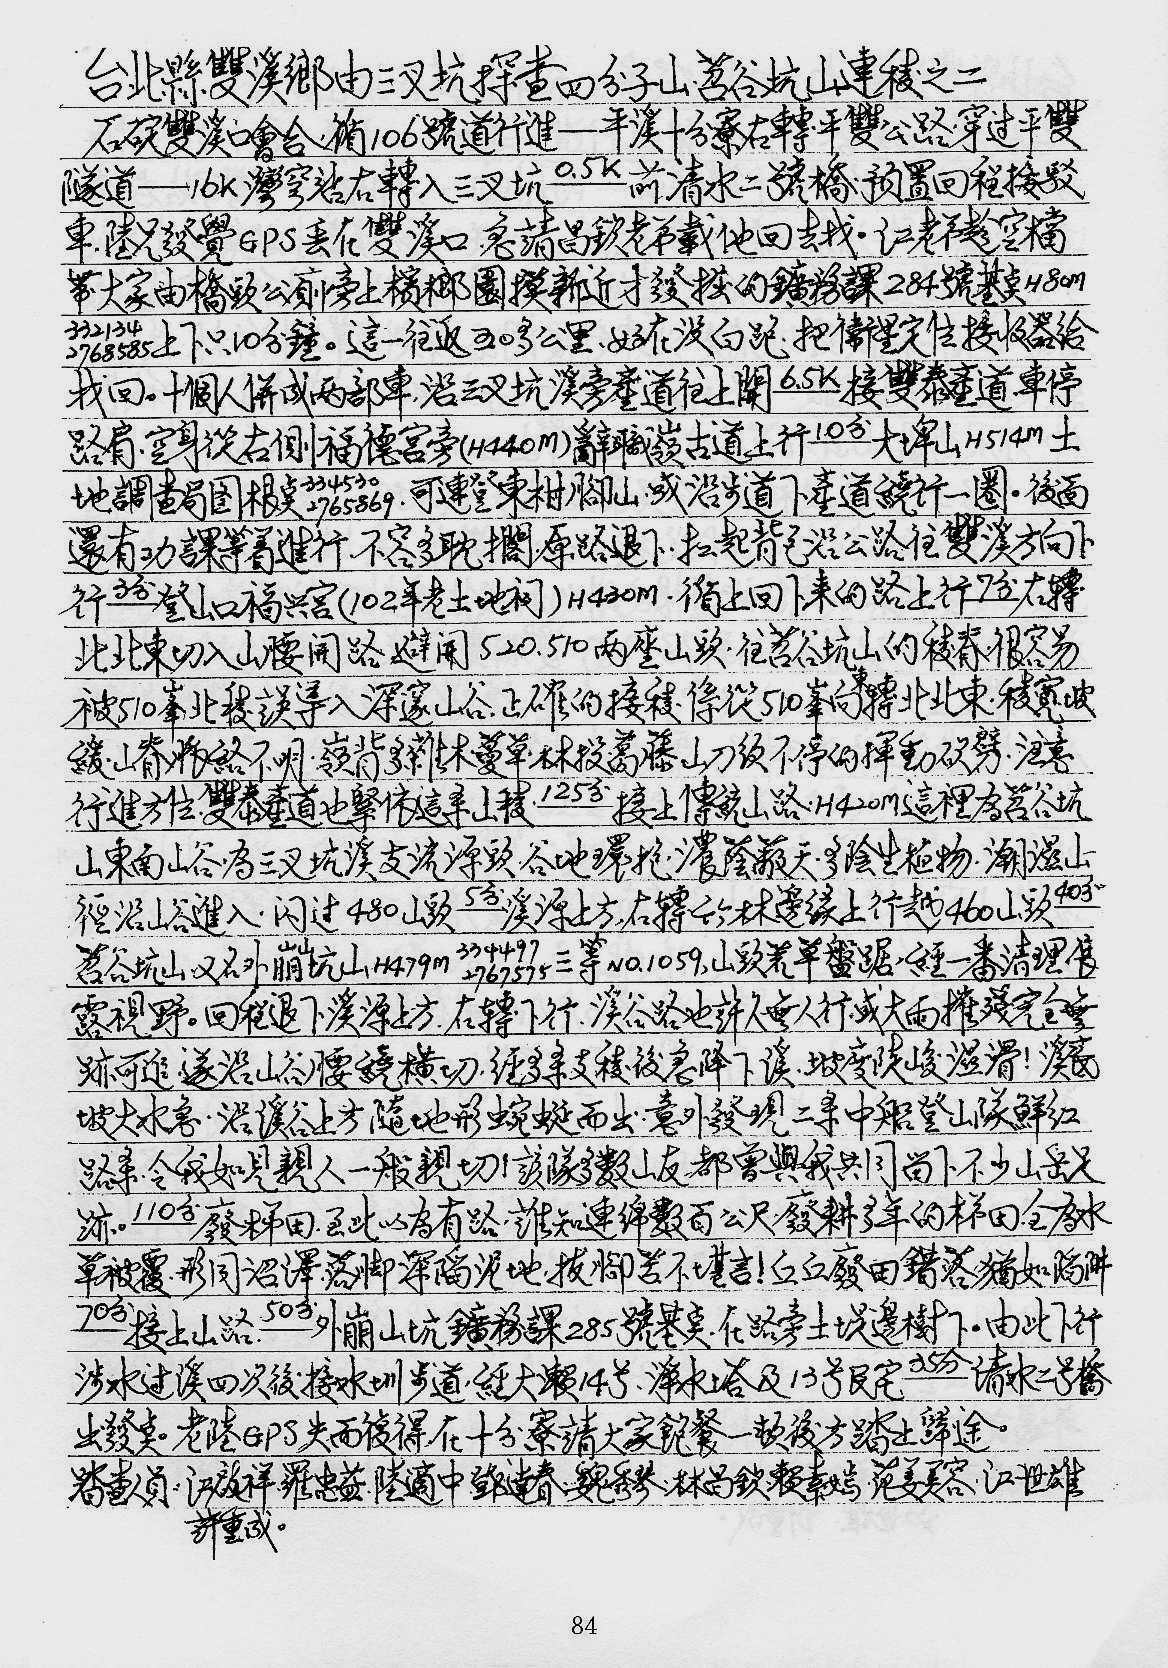 台北縣雙溪鄉由三叉坑探查四分子山.苕谷坑山連稜之二
石碇雙溪口會合.循106號道行進——平溪十分寮右轉平雙公路.穿过平雙
隧道——16K灣空站右轉入三叉坑 0.5K 前清水二號橋.預置回程接駁
車.陸兄發覺GPS丢在雙溪口.急請昌欽老弟載他回去找。江老弟趁空檔
帶大家由橋頭公廁旁上檳榔園摸新近才發掘的鑛務課284號基點H80m
332134 2768585 上下只10分鐘。這一往返30多公里.好在没白跑.把衛星定位接收器給
找回。十個人併成两部車.沿三叉坑溪旁產道往上開 6.5K 接雙泰產道.車停
路肩.空身從右側福德宮旁(H440m)辭職嶺古道上行 10分 大埤山H514m土
地調查局圖根點 334530 2765869.可連登東柑腳山.或沿步道下產道繞行一圈。後面
還有功課等著進行.不容多耽擱.原路退下.扛起背包沿公路往雙溪方向下
行 3分 登山口福興宮(102年老土地祠)H430m.循上回下来的路上行7分右轉
北北東切入山腰開路.避開520.510两座山頭.往苕谷坑山的稜脊.很容易
被510峯北稜誤導入深邃山谷.正確的接稜.係從510峯向東轉北北東.稜寬坡
緩.山脊脈絡不明.嶺背多雜木蔓草.林投葛藤.山刀须不停的揮動砍劈.注意
行進方位.雙泰產道也緊依這条山稜. 125分 接上傳統山路.H420m這裡為苕谷坑
山東南山谷.為三叉坑溪支流源頭.谷地環抱.濃蔭蔽天.多陰生植物.潮濕山
徑沿山谷進入.闪过480山頭 5分 溪源上方.右轉 林邊緣上行越460山頭 40分
苕谷坑山又名外崩坑山H479m 334497 2767575 三等NO.1059.山頭荒草盤踞.經一番清理
露視野。回程退下溪源上方.右轉下行.溪谷路也許久無人行.或大雨摧殘完全無
跡可追.遂沿山谷腰繞横切.經多条支稜後急降下溪.坡度陡峻濕滑!溪
坡大水急.沿溪谷上方隨地形蜿蜒而出.意外發現二条中船登山隊鮮紅
路条.令我如見親人一般親切!該隊多數山友都曾與我共同尚下不少山岳足
跡。 110分 廢梯田.至此以為有路.誰知連綿數百公尺.廢耕多年的梯田全為水
草被覆.形同沼澤.落脚深陷泥地.拔腳苦不堪言!丘丘廢田錯落.猶如陷阱
70分 接上山路. 50分 外崩山坑鑛務課285號基點.在路旁土堤邊樹下。由此下行
涉水过溪四次後.接水圳步道.經大瀨14号.淨水塔及13号民宅 35分 清水二号橋
出發點。老陸GPS失而復得.在十分寮請大家飽餐一頓後方踏上歸途。
踏查人員.江啟祥.羅忠益.陸適中.鄧連春.魏秀琴.林昌欽.賴素嫣.范姜美容.江世雄
許重成。
84